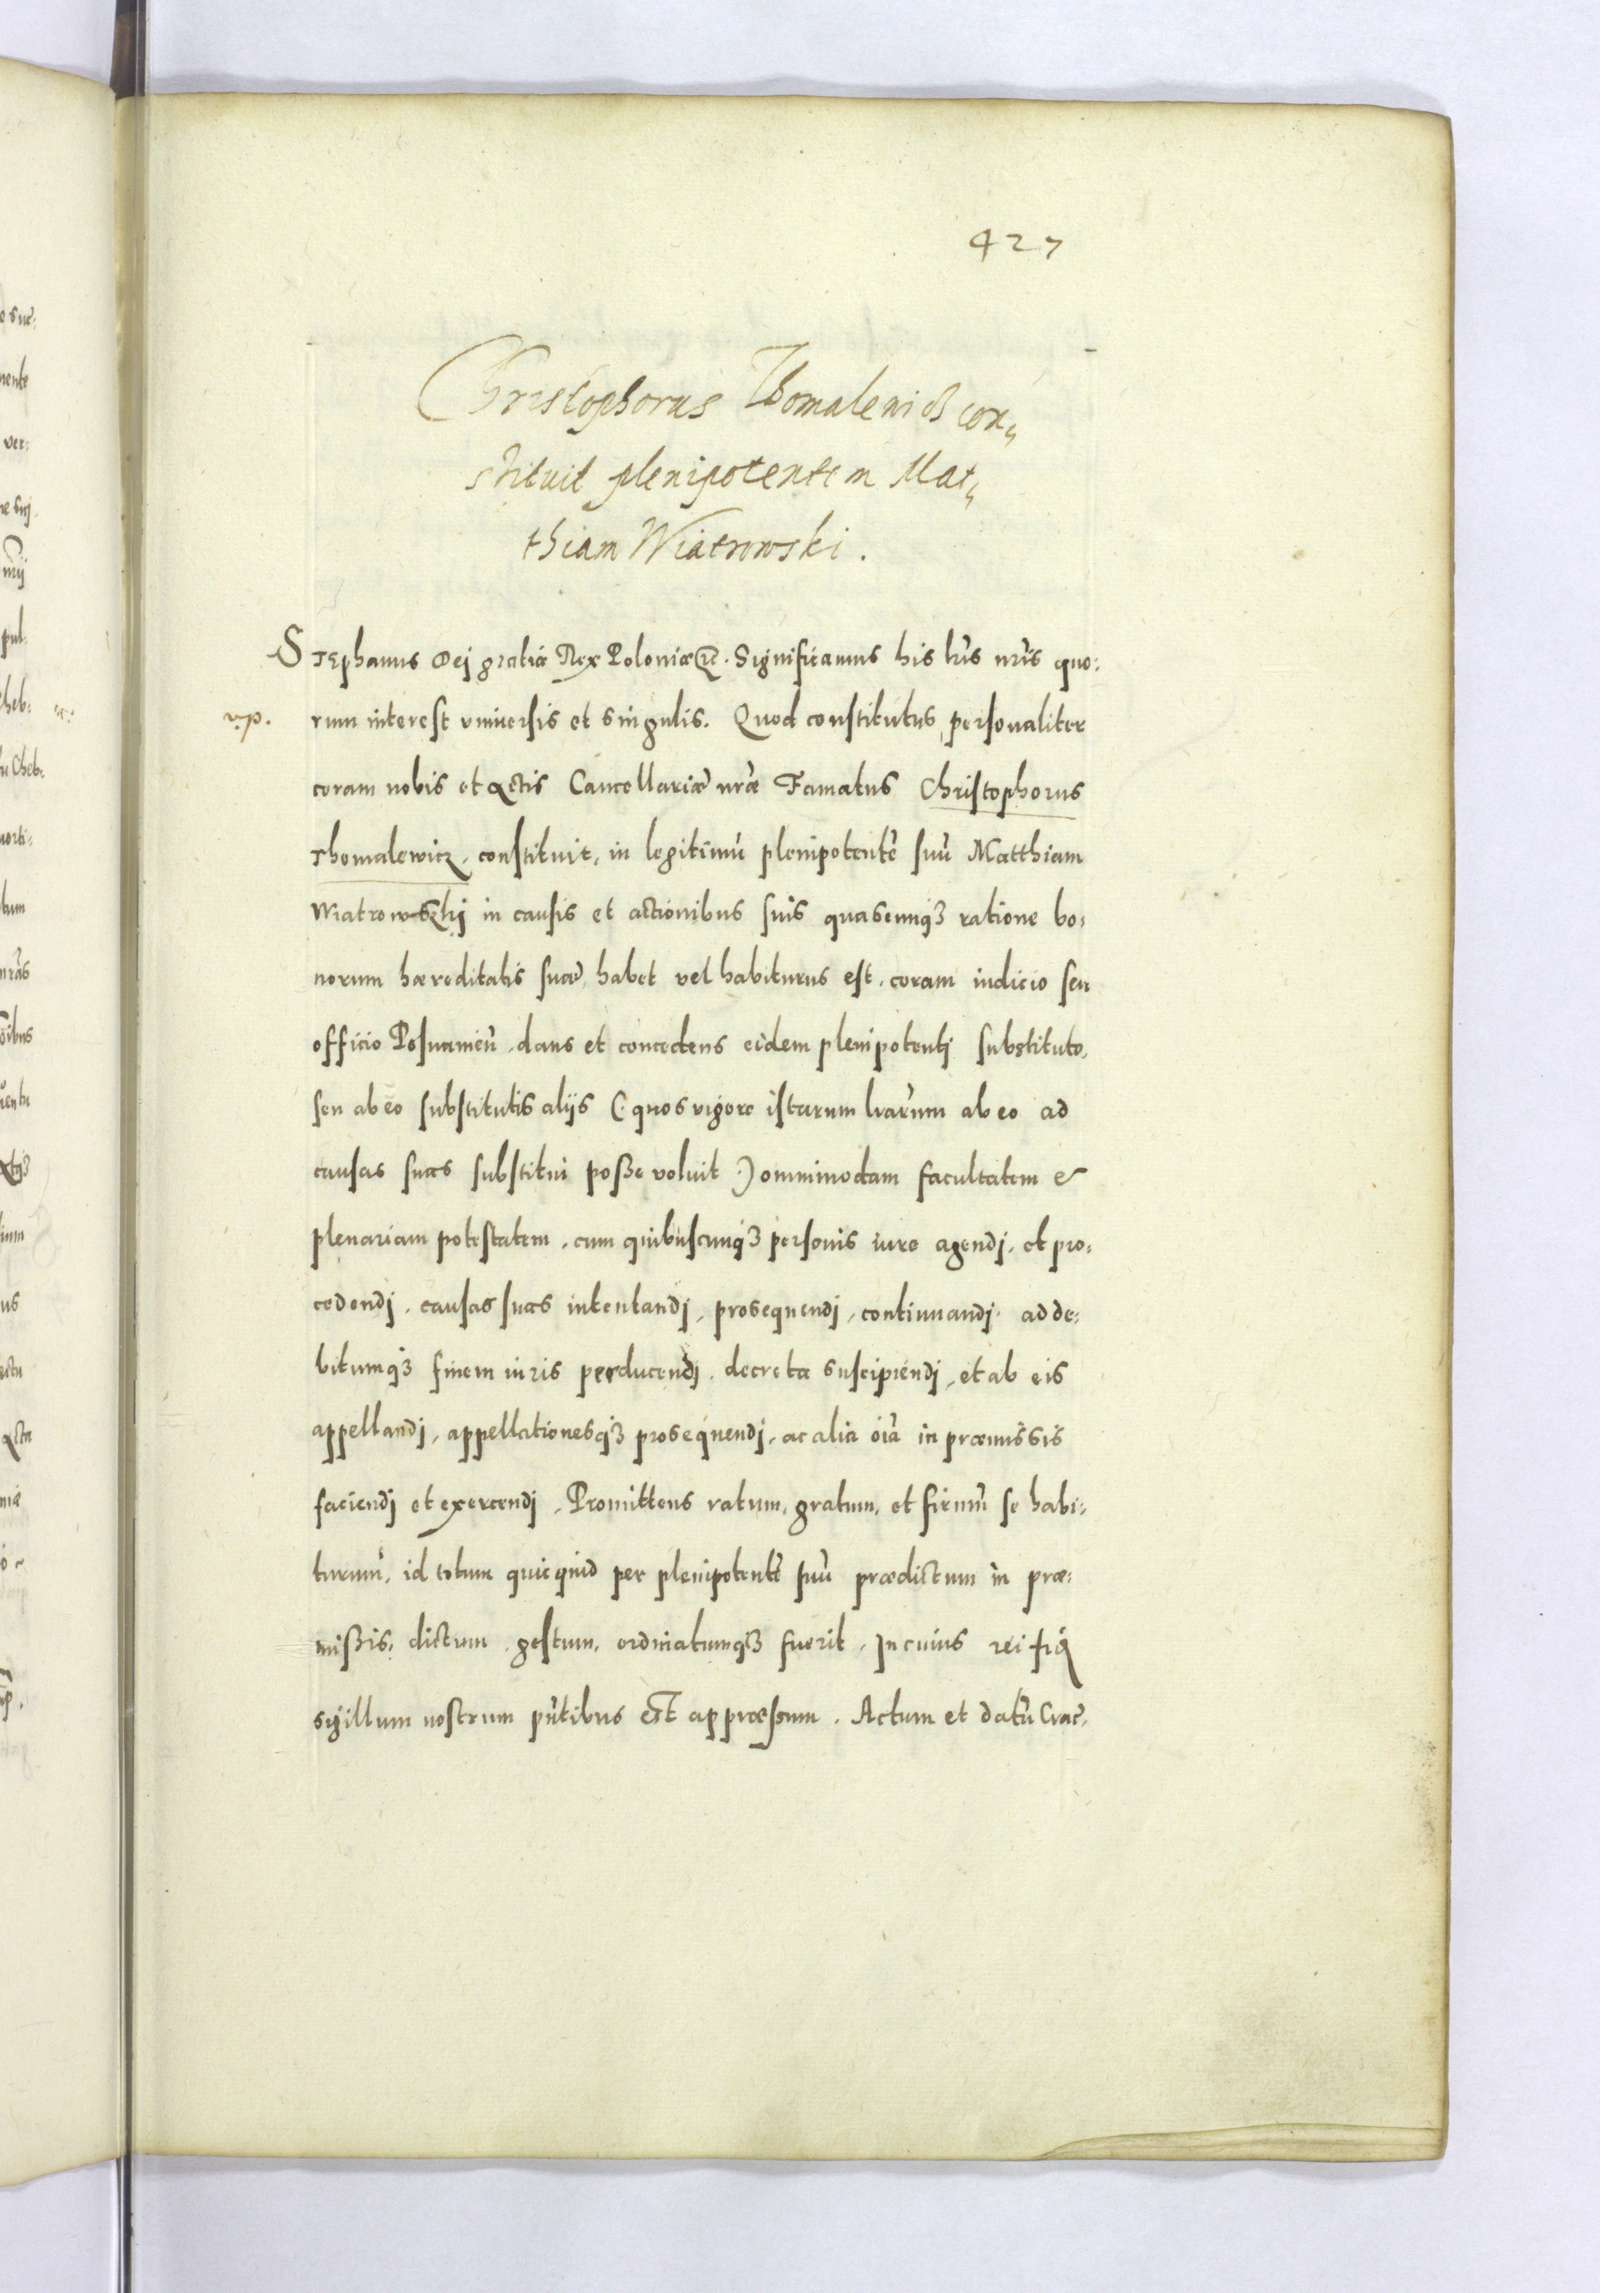 427
Christophorus Thomalewicz con-
stituit plenipotentem Mat-
thiam Wiatrowski.
Stephanus Dej gratia Rex Poloniæ etc. Significamus his lr̃is nr̃is quo:
vp. rum interest vniuersis et singulis. Quod constitutus personaliter
coram nobis et Actis Cancellariæ nr̃æ Famatus Christophorus
Thomalewicz, constituit, in legitimũ plenipotentẽ suũ Matthiam
Wiatrowszkj in causis et actionibus suis quascunqʒ ratione bo:
norum hæreditatis suæ habet vel habiturus est, coram iudicio seu
officio Posnanieñ, dans et concedens eidem plenipotentj substituto,
seu ab eo substitutis alijs (: quos vigore istarum lr̃arum ab eo ad
causas suas substitui posse voluit :) omnimodam facultatem &
plenariam potestatem, cum quibuscunqʒ personis iure agendj, et pro:
cedendj, causas suas intentandj, prosequendj, continuandj, ad de:
bitumqʒ finem iuris perducendj, decreta suscipiendj, et ab eis
appellandj, appellationesqʒ prosequendj, ac alia oĩa in præmissis
faciendj et exercendj, Promittens ratum, gratum, et firmũ se habi:
turum, id totum quicquid per plenipotentẽ suũ prædictum in præ:
missis, dictum, gestum, ordinatumqʒ fuerit, In cuius rei fidẽ
sigillum nostrum pñtibus est appræssum. Actum et datũ Crac̃.